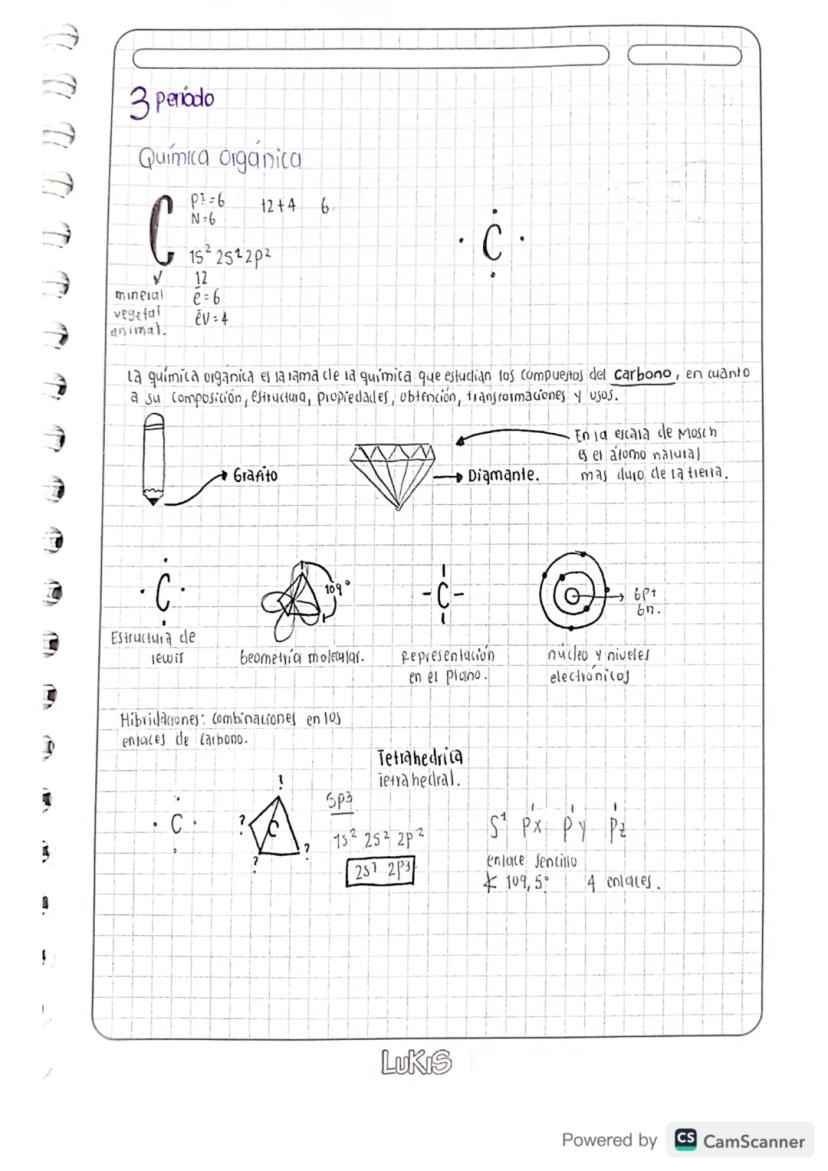 3 periodo
Química orgánica
C
P⁺=6 12+4 6
N=6
1s² 2s² 2p²
12
ē=6
ēv=4
mineral
vegetal
animal.
· C ·
La química orgánica es la rama de la química que estudian los compuestos del carbono, en cuanto
a su composición, estructura, propiedades, obtención, transformaciones y usos.
Grafito
Diamante.
En la escala de Mosch
es el átomo natural
mas duro de la tierra.
· C ·
109°
-C-
6p+
6n.
Estructura de
lewis
Geometría molecular.
Representación
en el plano.
núcleo y niveles
electrónicos
Hibridaciones: combinaciones en los
enlaces de carbono.
Tetrahedrica
Tetrahedral.
· C ·
?
?
C
?
?
Sp3
1s² 2s² 2p²
2s1 2p3
S¹ Px¹ Py¹ Pz¹
enlace sencillo
∡ 109,5° 4 enlaces.
LUKIS
Powered by CS CamScanner